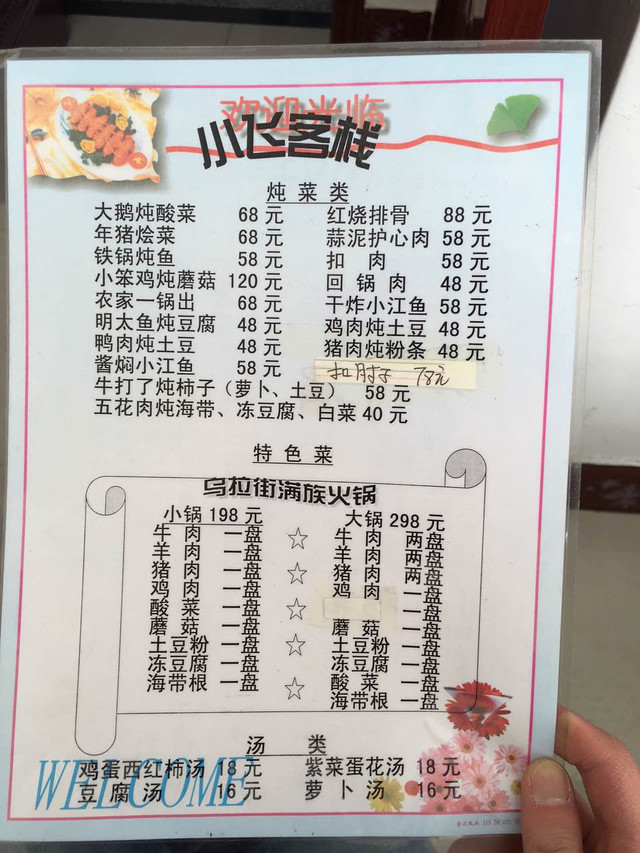 欢迎光临
小飞客栈
炖菜类
大鹅炖酸菜 68元 红烧排骨 88元
年猪烩菜 68元 蒜泥护心肉 58元
铁锅炖鱼 58元 扣肉 58元
小笨鸡炖蘑菇 120元 回锅肉 48元
农家一锅出 68元 干炸小江鱼 58元
明太鱼炖豆腐 48元 鸡肉炖土豆 48元
鸭肉炖土豆 48元 猪肉炖粉条 48元
酱焖小江鱼 58元 扣肘子 78元
牛打了炖柿子（萝卜、土豆） 58元
五花肉炖海带、冻豆腐、白菜 40元
特色菜
乌拉街满族火锅
小锅198元 大锅298元
牛肉 一盘 ☆ 牛肉 两盘
羊肉 一盘 羊肉 两盘
猪肉 一盘 ☆ 猪肉 两盘
鸡肉 一盘 鸡肉 一盘
酸菜 一盘 ☆ 一盘
蘑菇 一盘 蘑菇 一盘
土豆粉 一盘 ☆ 土豆粉 一盘
冻豆腐 一盘 冻豆腐 一盘
海带根 一盘 ☆ 酸菜 一盘
海带根 一盘
汤类
鸡蛋西红柿汤 18元 紫菜蛋花汤 18元
豆腐汤 16元 萝卜汤 16元
WELCOME